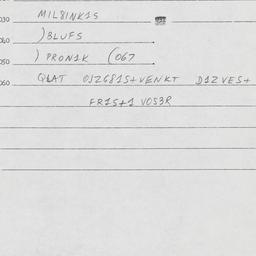 030 MIL8INK1S
040 )BLUFS
050 ) PRON1K (067
060 QLAT OJ26815+VENKT D1ZVES+
FR1S+1 VOS3R